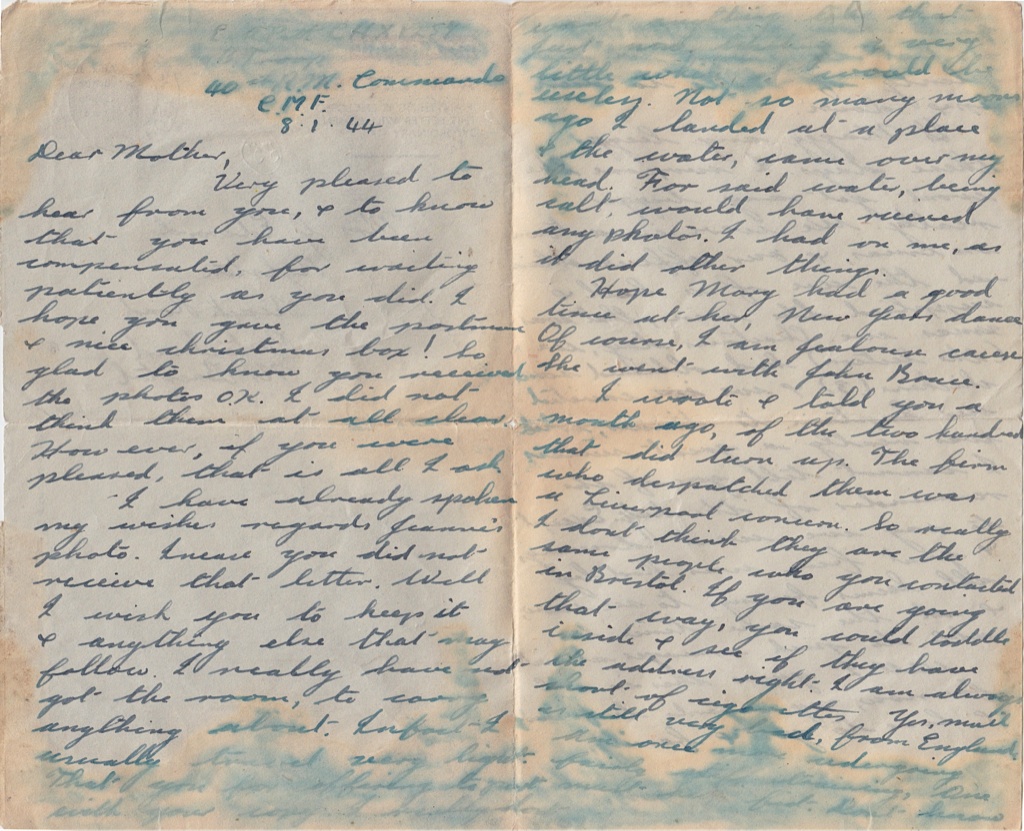 40 R.M. Commando
C.M.F.
8.1.44
Dear Mother,
Very pleased to
hear from you, & to know
that you have been
compensated, for waiting
patiently as you did. I
hope you gave the postman
a nice christmas box! So
glad to know you received
the photos O.K. I did not
think them at all clear
How ever, if you were
pleased, that is all I ask
I have already spoken
my wishes regards Jeannie's
photo. Incase you did not
receive that letter. Well
I wish you to keep it
& anything else that may
follow. I really have not
got the room, to carry
anything about. Infact I
usually travel very light
That you
with your
that
very
little would
useley. Not so many moons
ago I landed at a place
& the water, came over my
head. For said water, being
salt, would have ruined
any photos. I had on me, as
it did other things.
Hope Mary had a good
time at her, New Years dance
Of course, I am jealouse cause
She went with John Bruce.
I wrote & told you a
month ago, of the two hundred
that did turn up. The firm
who despatched them was
a Liverpool concern. So really
I dont think they are the
same people who you contacted
in Bristol. If you are going
that way, you could toddle
inside & see if they have
the address right. I am always
short of cigarettes. Yes, mail
is still very bad, from England
are once